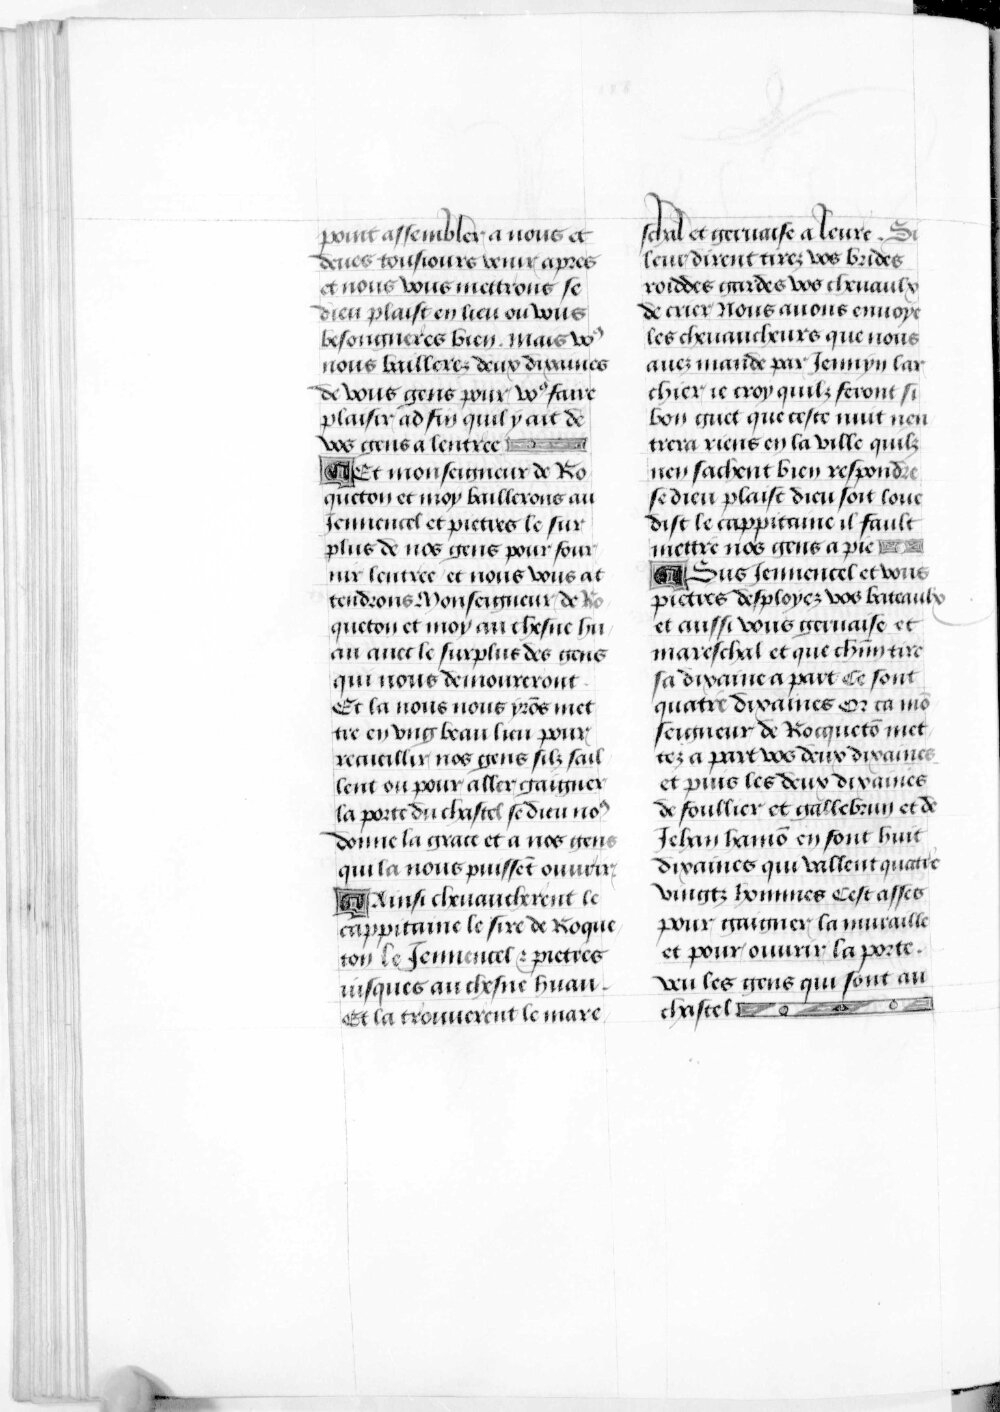 point assembler a nous et
deues tousiours venir apres
et nous vous mettrons se
dieu plaist en lieu ou vous
besongneres bien. Mais vo⁹
nous baillerez deux dixaines
de vous gens pour vo⁹ faire
plaisir ad fin quil y ait de
vos gens a lentree
Et monseigneur de Ro
queton et moy baillerons au
Jennencel et pietres le sur
plus de nos gens pour four
nir lentree et nous vous at
tendrons Monseigneur de Ro
queton et moy au chesne hu
au auec le surplus des gens
qui nous demoureront.
Et la nous nous yrõs met
tre en vng beau lieu pour
recueillir nos gens silz sail
lent ou pour aller gaigner
la porte du chastel se dieu no⁹
donne la grace et a nos gens
qui la nous puissẽt ouurir
Ainsi cheuaucherent le
cappitaine le sire de Roque
ton le Jennencel ⁊ pietres
iusques au chesne huau.
Et la trouuerent le mare
schal et geruaise a leure. Si
leur dirent tirez vos brides
roiddes gardes vos cheuaulx
de crier Nous auons enuoye
les cheuaucheurs que nous
auez mande par Jennyn lar
chier ie croy quilz feront si
bon guet que ceste nuit nen
trera riens en la ville quilz
nen sachent bien respondre
se dieu plaist dieu soit loue
dist le cappitaine il fault
mettre nos gens a pie
Sus Jennencel et vous
pietres desployez vos bateaulx
et aussi vous geruaise et
mareschal et que chũn tire
sa dixaine a part Ce sont
quatre dixaines Or ca mõ
seigneur de Rocquetõ met
tez a part vos deux dixaines
et puis les deux dixaines
de foullier et gallebrun et de
Jehan hamõ en font huit
dixaines qui vallent quatre
vingtz hommes Cest asses
pour gaigner la muraille
et pour ouurir la porte.
veu les gens qui sont au
chastel